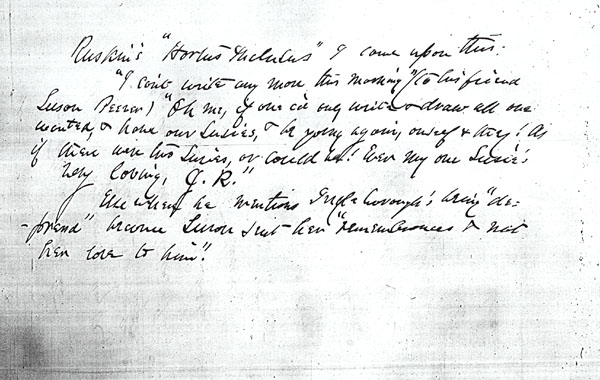 Ruskin's "Hortus Inclusus" I came upon this:
"I can't write any more this morning" (to his friend
Susan Beever) "Oh me, if one cd only write & draw all one
wanted, & have our Susies, & be young again, oneself & they! As
if there were two Susies, or could be! Ever my one Susie's
very loving, J. R."
Elsewhere he mentions Ingleborough's being "de-
-pressed" because Susan sent her "remembrances & not
her love to him".